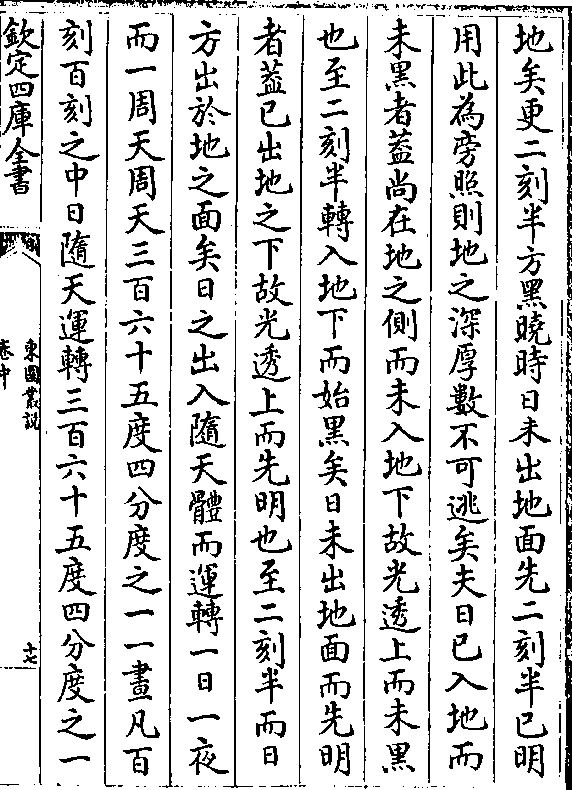 地矣更二刻半方黑曉時日未出地面先二刻半已明
用此為旁照則地之深厚數不可逃矣夫日已入地而
未黑者葢尚在地之側而未入地下故光透上而未黑
也至二刻半轉入地下而始黑矣日未出地面而先明
者葢已出地之下故光透上而先明也至二刻半而日
方出於地之面矣日之出入隨天體而運轉一日一夜
而一周天周天三百六十五度四分度之一一晝凡百
刻百刻之中日隨天運轉三百六十五度四分度之一
欽定四庫全書
東園叢説
卷中
十七